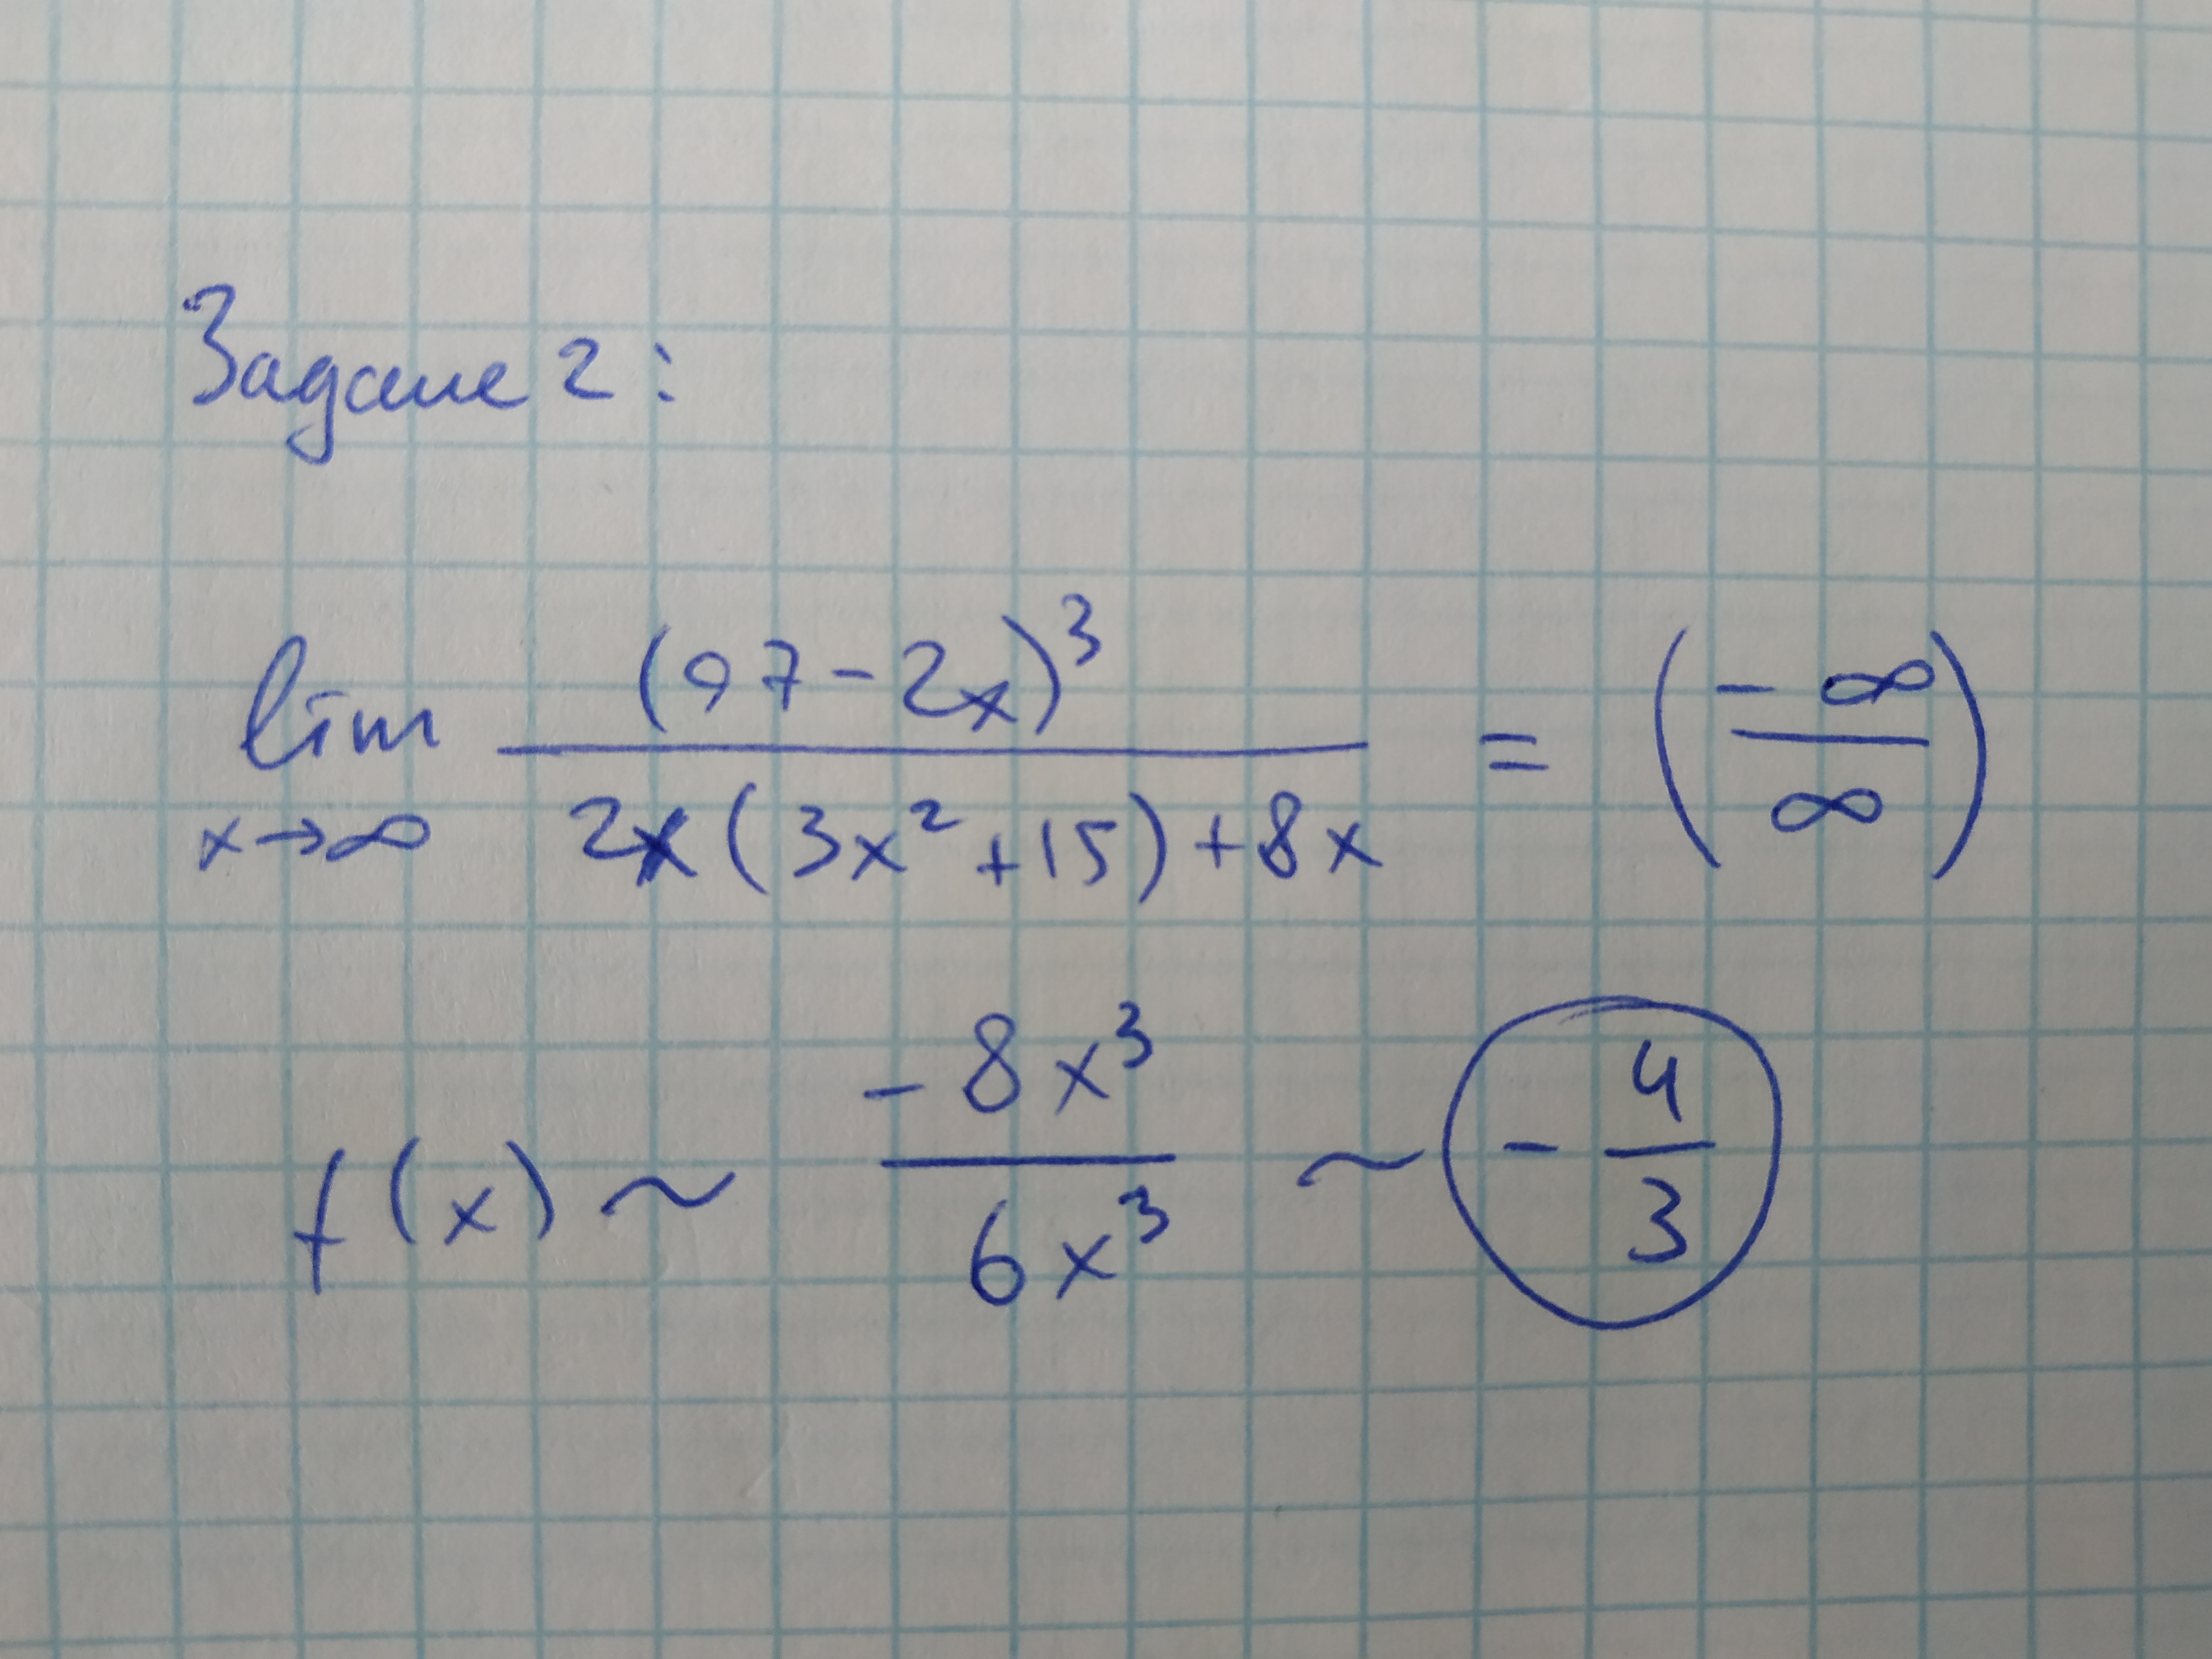 Задание 2:
lim x→∞ (97-2x)³ / (2x(3x²+15)+8x) = (-∞/∞)
f(x) ~ -8x³/6x³ ~ -4/3